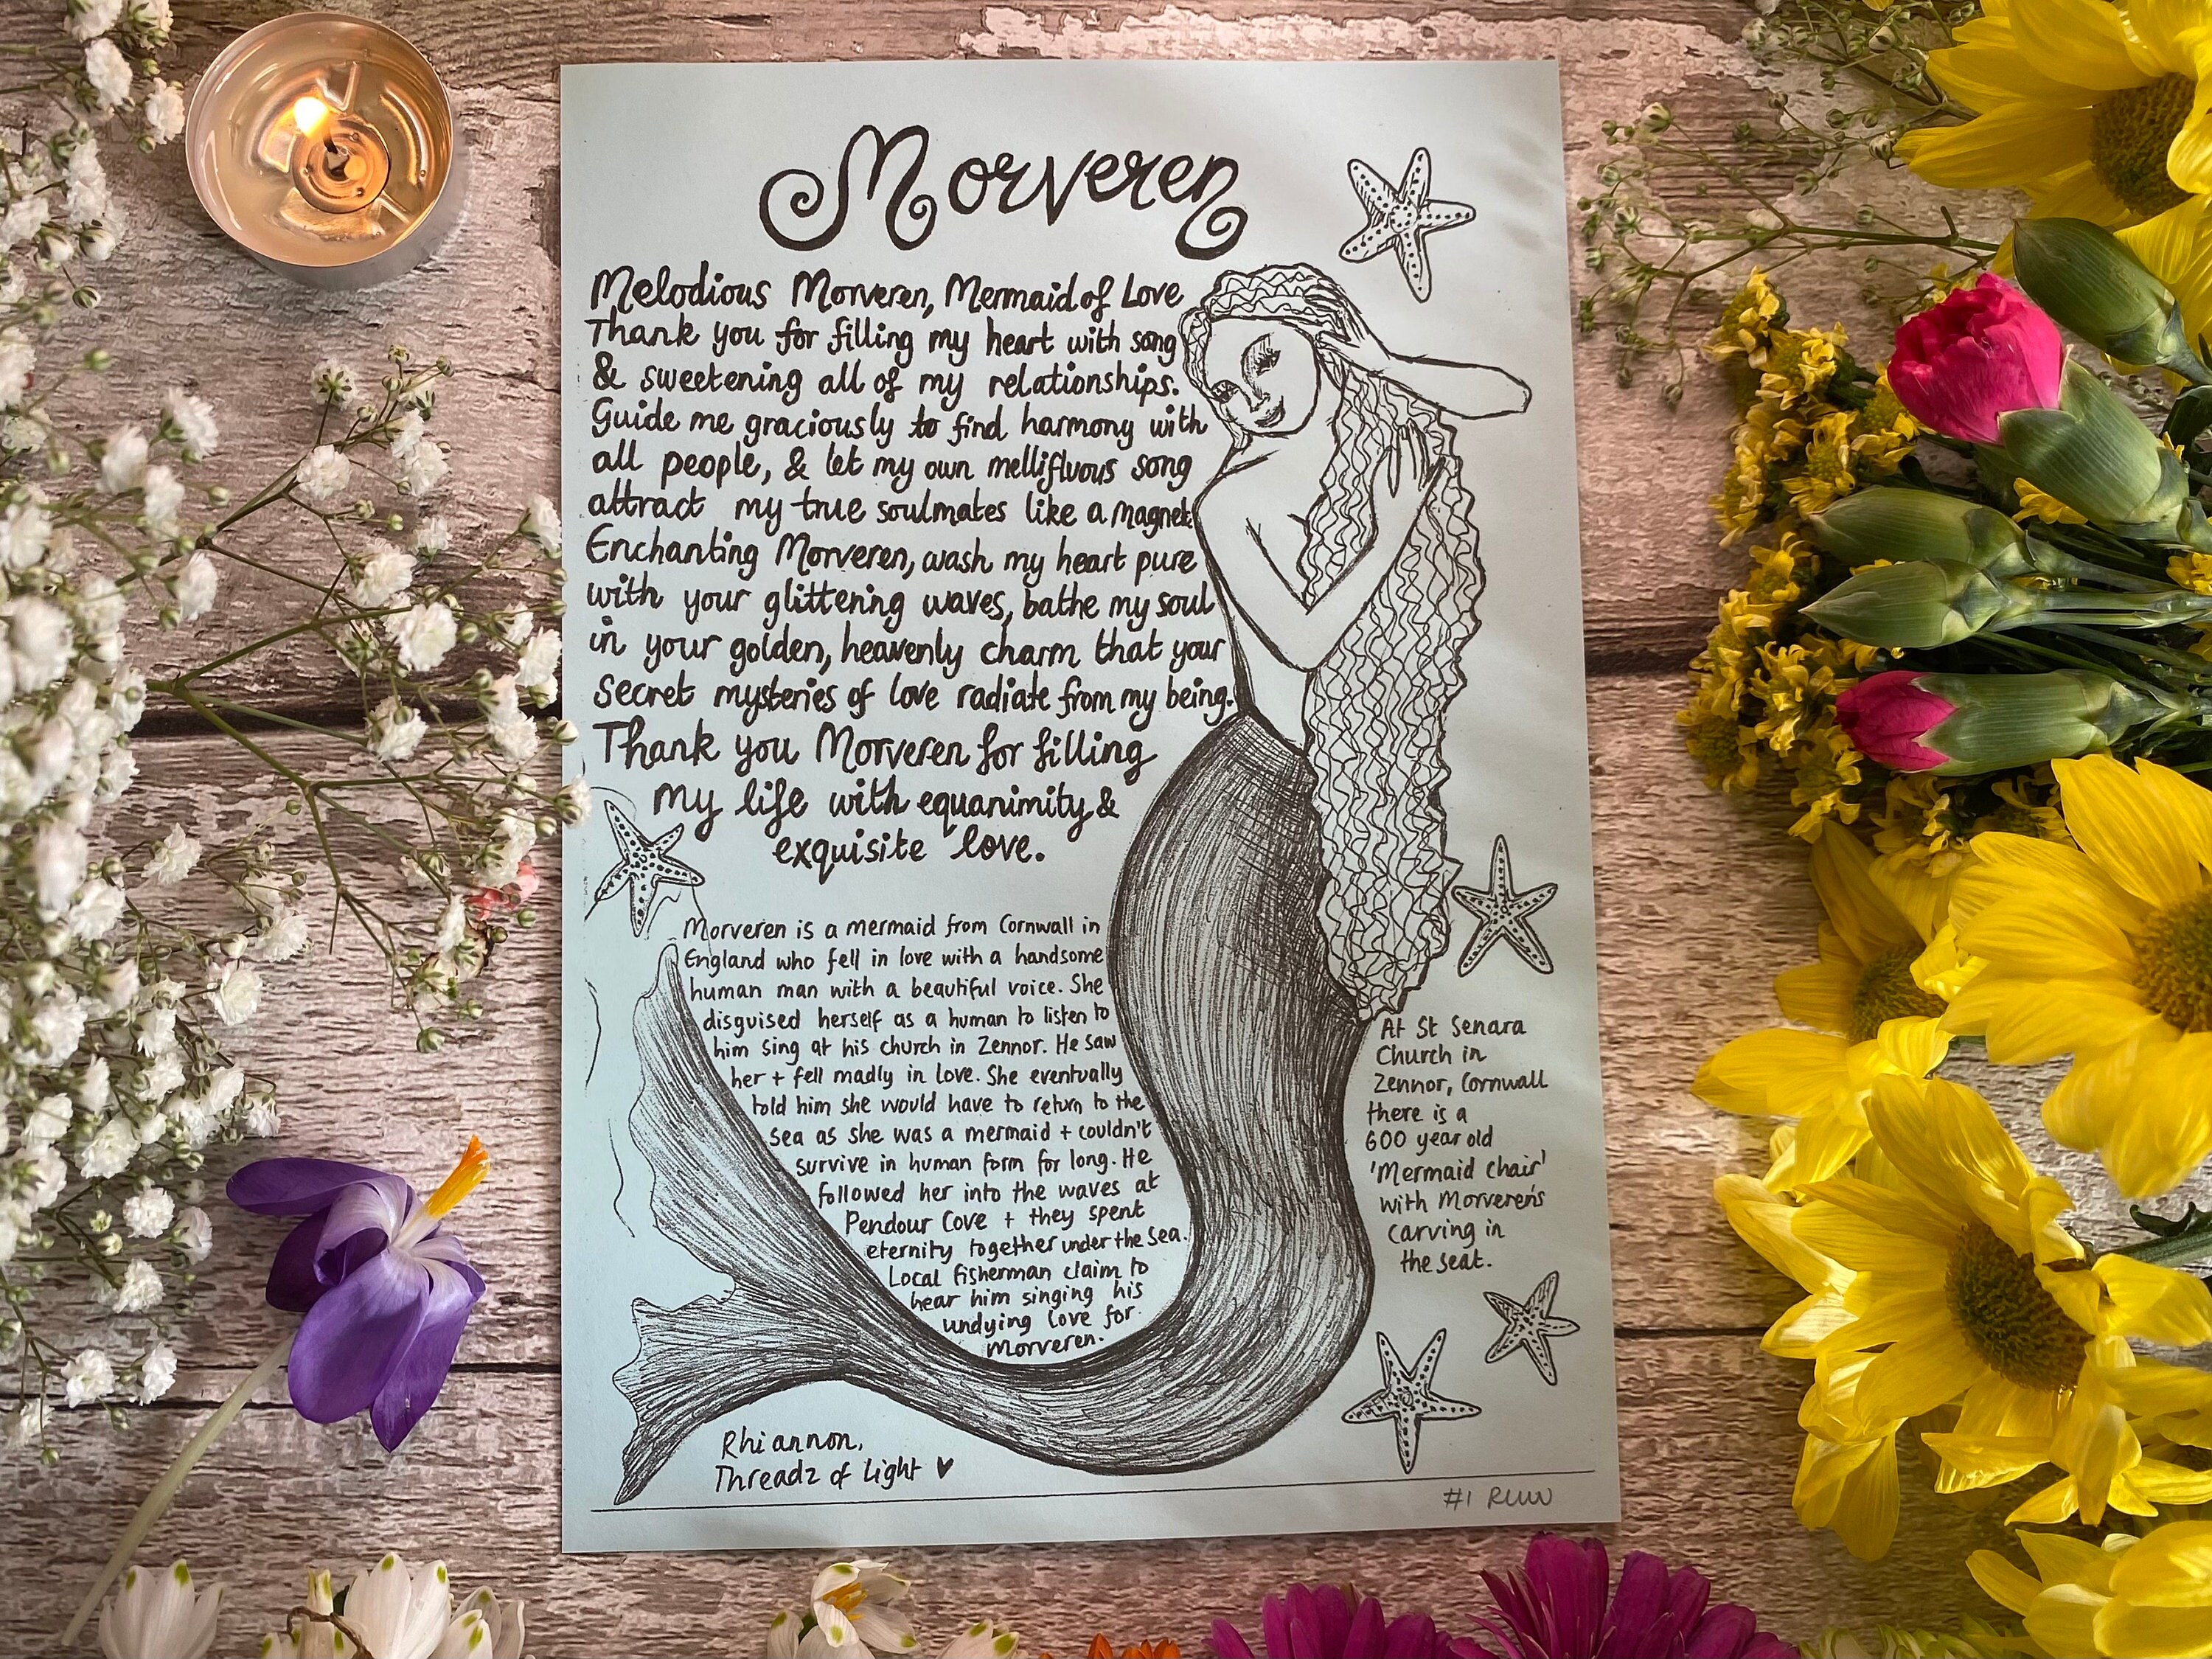 Morveren
Melodious Morveren, Mermaid of Love
Thank you for filling my heart with song
& sweetening all of my relationships.
Guide me graciously to find harmony with
all people, & let my own mellifluous song
attract my true soulmates like a magnet.
Enchanting Morveren, wash my heart pure
with your glittering waves, bathe my soul
in your golden, heavenly charm that your
Secret mysteries of love radiate from my being.
Thank you Morveren for filling
my life with equanimity &
exquisite love.
Morveren is a mermaid from Cornwall in
England who fell in love with a handsome
human man with a beautiful voice. She
disguised herself as a human to listen to
him sing at his church in Zennor. He saw
her + fell madly in love. She eventually
told him she would have to return to the
sea as she was a mermaid + couldn't
survive in human form for long. He
followed her into the waves at
Pendour Cove + they spent
eternity together under the sea.
Local fisherman claim to
hear him singing his
undying love for
Morveren.
At St Senara
Church in
Zennor, Cornwall
there is a
600 year old
'Mermaid Chair'
with Morveren's
carving in
the seat.
Rhiannon,
Threadz of Light ♥
#1